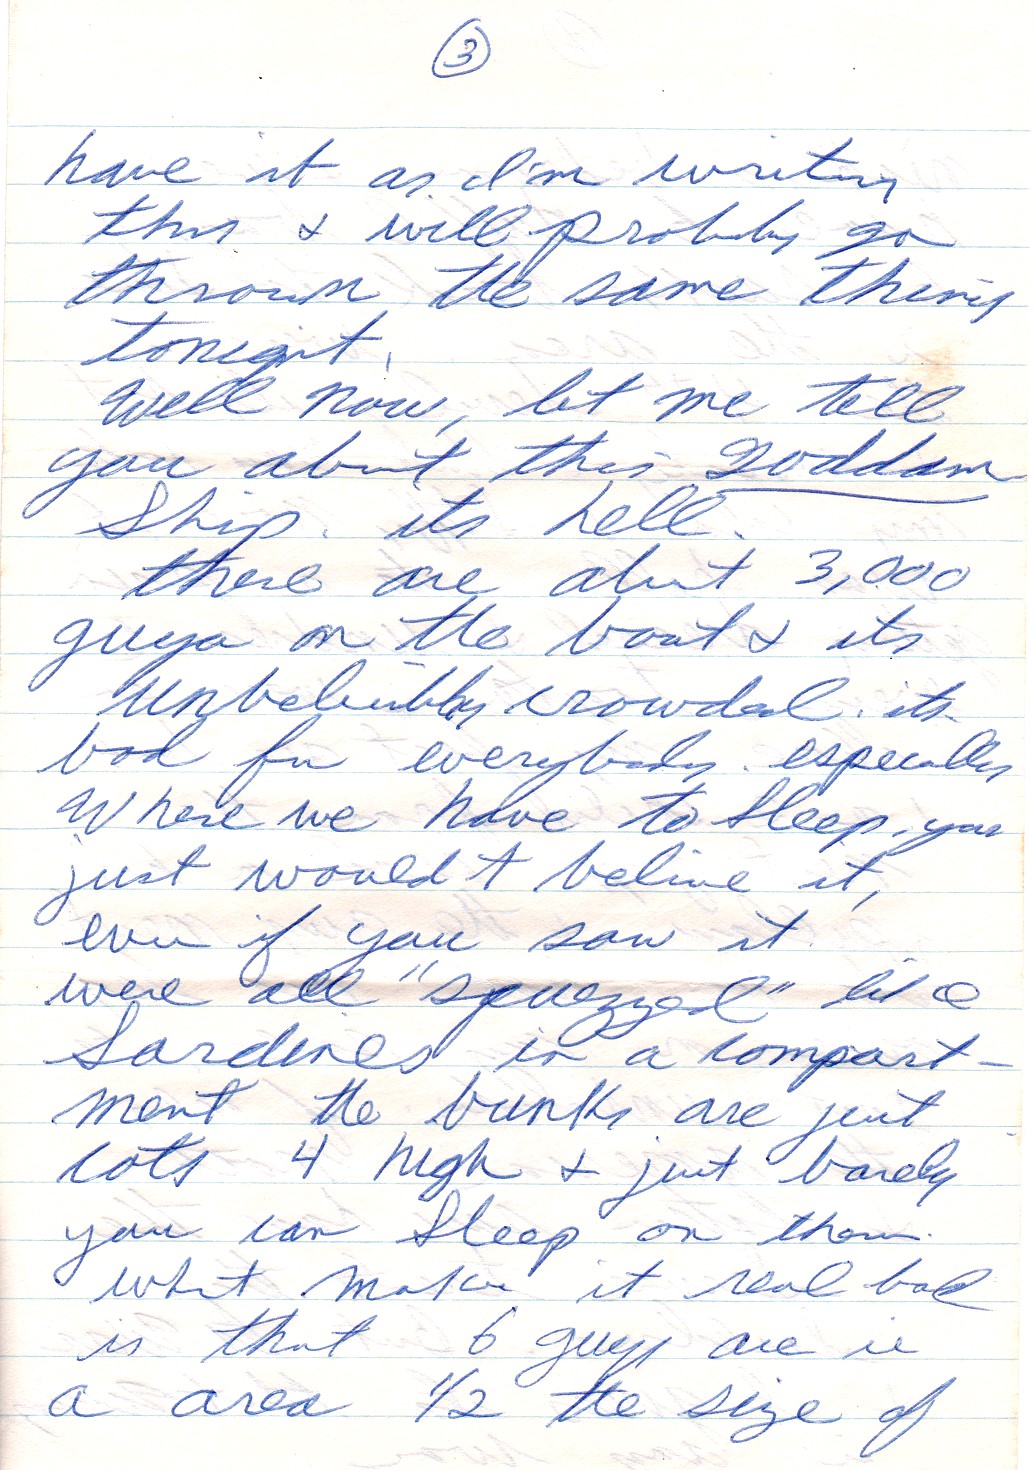 3
have it as I'm writing
this & will probably go
through the same thing
tonight.
Well now, let me tell
you about this Goddam
Ship. its hell.
there are about 3,000
guys on the boat & its
unbeliebly crowded. its
bad for everybody. especially
Where we have to sleep. you
just would't belive it,
even if you saw it.
were all "squezzed" like
Sardines in a compart-
ment the bunks are just
cots 4 high & just barely
you can sleep on them.
what makes it real bad
is that 6 guys are in
a area 1/2 the size of